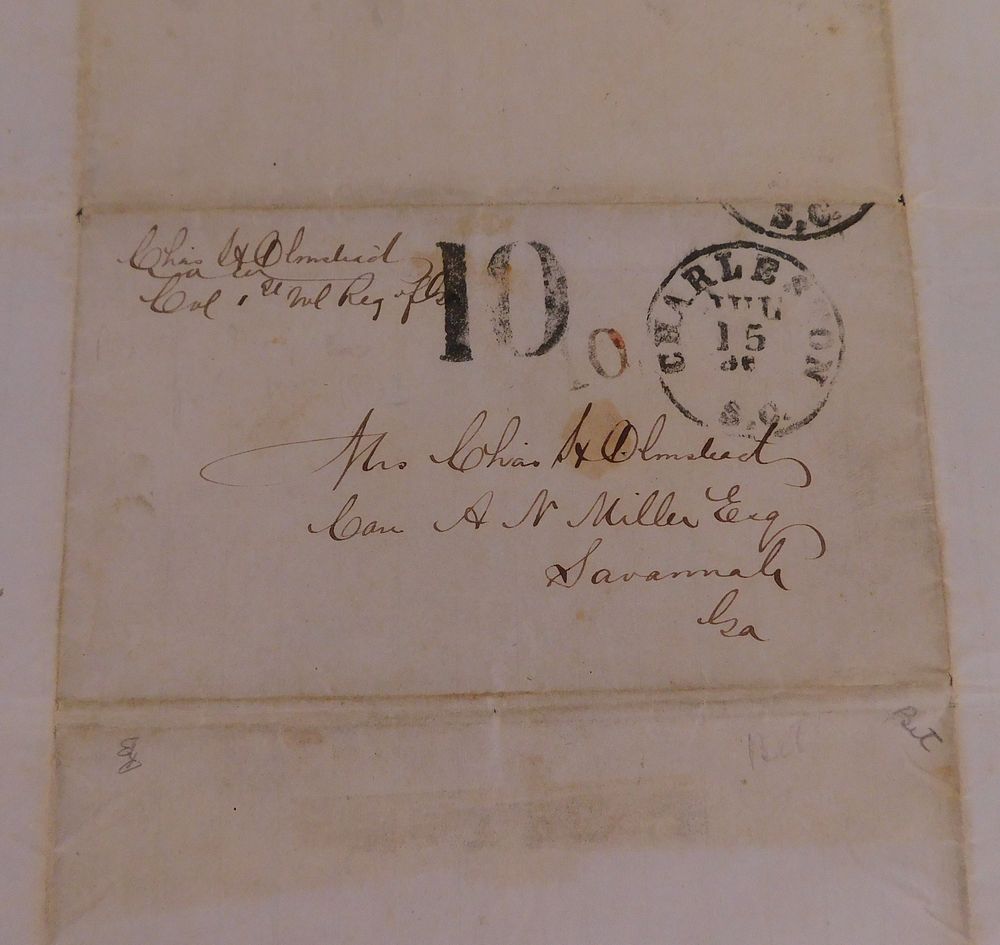 S.C.
Chas H Olmstead
Col 1st Vol Reg of Ga
10
10
CHARLESTON
JUL
15
S.C.
Mrs Chas H Olmstead
Care A N Miller Esq
Savannah
Ga
Ret
Ret